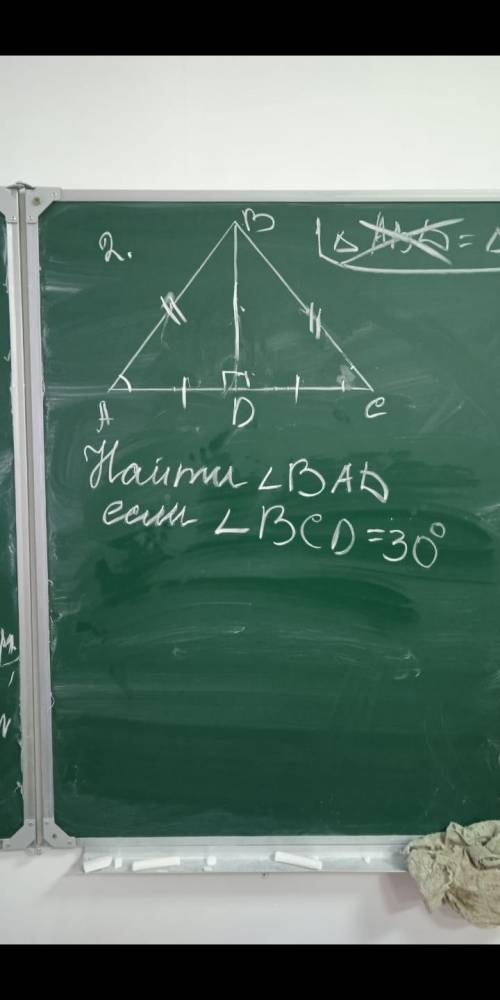 2.
B
△ ABD = △
A
D
C
Найти ∠BAD
если ∠BCD = 30°